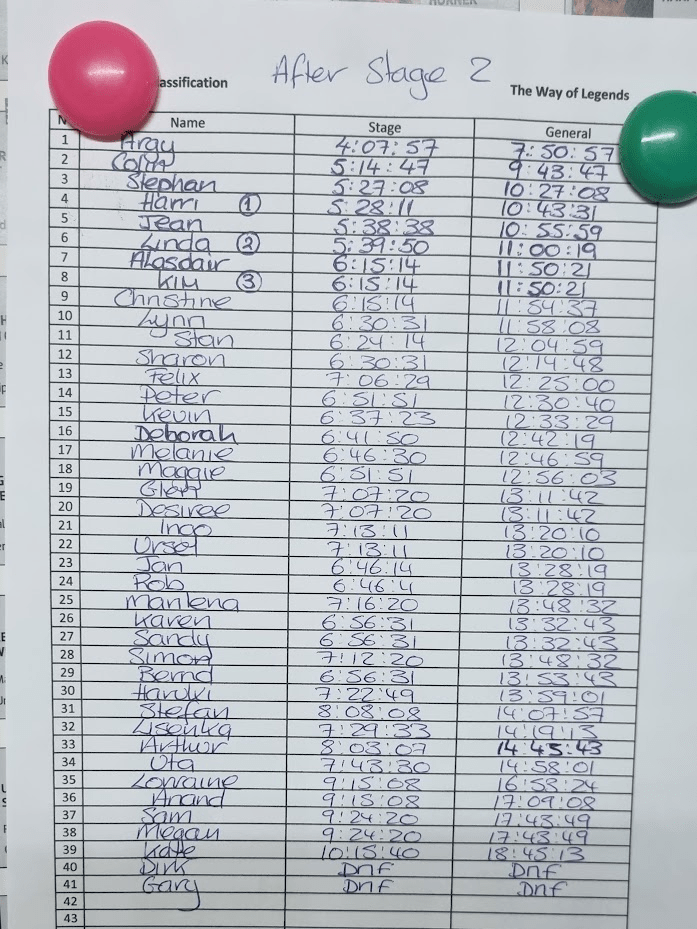 After Stage 2
assification
The Way of Legends
N Name Stage General
1 Aray 4:07:57 7:50:57
2 Colin 5:14:47 9:43:47
3 Stephan 5:27:08 10:27:08
4 Harri ① 5:28:11 10:43:31
5 Jean 5:38:38 10:55:59
6 Linda ② 5:39:50 11:00:19
7 Alasdair 6:15:14 11:50:21
8 Kim ③ 6:15:14 11:50:21
9 Christine 6:15:14 11:54:37
10 Lynn 6:30:31 11:58:08
11 Stan 6:24:14 12:04:59
12 Sharon 6:30:31 12:14:48
13 Felix 7:06:29 12:25:00
14 Peter 6:51:51 12:30:40
15 Kevin 6:37:23 12:33:29
16 Deborah 6:41:50 12:42:19
17 Melanie 6:46:30 12:46:59
18 Maggie 6:51:51 12:56:03
19 Glen 7:07:20 13:11:42
20 Desiree 7:07:20 13:11:42
21 Ingo 7:13:11 13:20:10
22 Ursel 7:13:11 13:20:10
23 Jan 6:46:14 13:28:19
24 Rob 6:46:4 13:28:19
25 Marilena 7:16:20 13:48:32
26 Karen 6:56:31 13:32:43
27 Sandy 6:56:31 13:32:43
28 Simon 7:12:20 13:48:32
29 Bernd 6:56:31 13:53:43
30 Haruki 7:22:49 13:59:01
31 Stefan 8:08:08 14:07:57
32 Lisenka 7:29:33 14:19:13
33 Arthur 8:03:07 14:45:43
34 Uta 7:43:30 14:58:01
35 Lorraine 9:15:08 16:53:24
36 Anand 9:15:08 17:09:08
37 Sam 9:24:20 17:43:49
38 Megan 9:24:20 17:43:49
39 Kate 10:15:40 18:45:13
40 Dirk Dnf Dnf
41 Gary Dnf Dnf
42
43